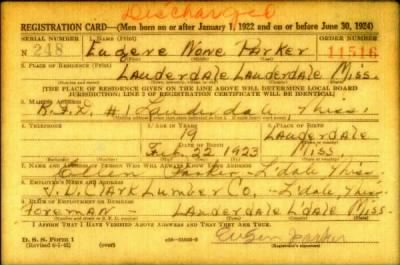 Discharged
REGISTRATION CARD—(Men born on or after January 1, 1922 and on or before June 30, 1924)
SERIAL NUMBER
1. NAME (Print)
ORDER NUMBER
N 248
Eugene None Parker
11516
2. PLACE OF RESIDENCE (Print)
Lauderdale Lauderdale Miss.
[THE PLACE OF RESIDENCE GIVEN ON THE LINE ABOVE WILL DETERMINE LOCAL BOARD
JURISDICTION; LINE 2 OF REGISTRATION CERTIFICATE WILL BE IDENTICAL]
3. MAILING ADDRESS
R.F.D. #1 Lauderdale, Miss.
4. TELEPHONE
5. AGE IN YEARS
6. PLACE OF BIRTH
19
Lauderdale
DATE OF BIRTH
Feb. 22 1923
Miss.
7. NAME AND ADDRESS OF PERSON WHO WILL ALWAYS KNOW YOUR ADDRESS
Parker - L'dale Miss.
8. EMPLOYER'S NAME AND ADDRESS
Lumber Co. - L'dale, Miss.
9. PLACE OF EMPLOYMENT OR BUSINESS
Foreman - Lauderdale L'dale Miss.
I AFFIRM THAT I HAVE VERIFIED ABOVE ANSWERS AND THAT THEY ARE TRUE.
D. S. S. Form 1
Parker
(Registrant's signature)